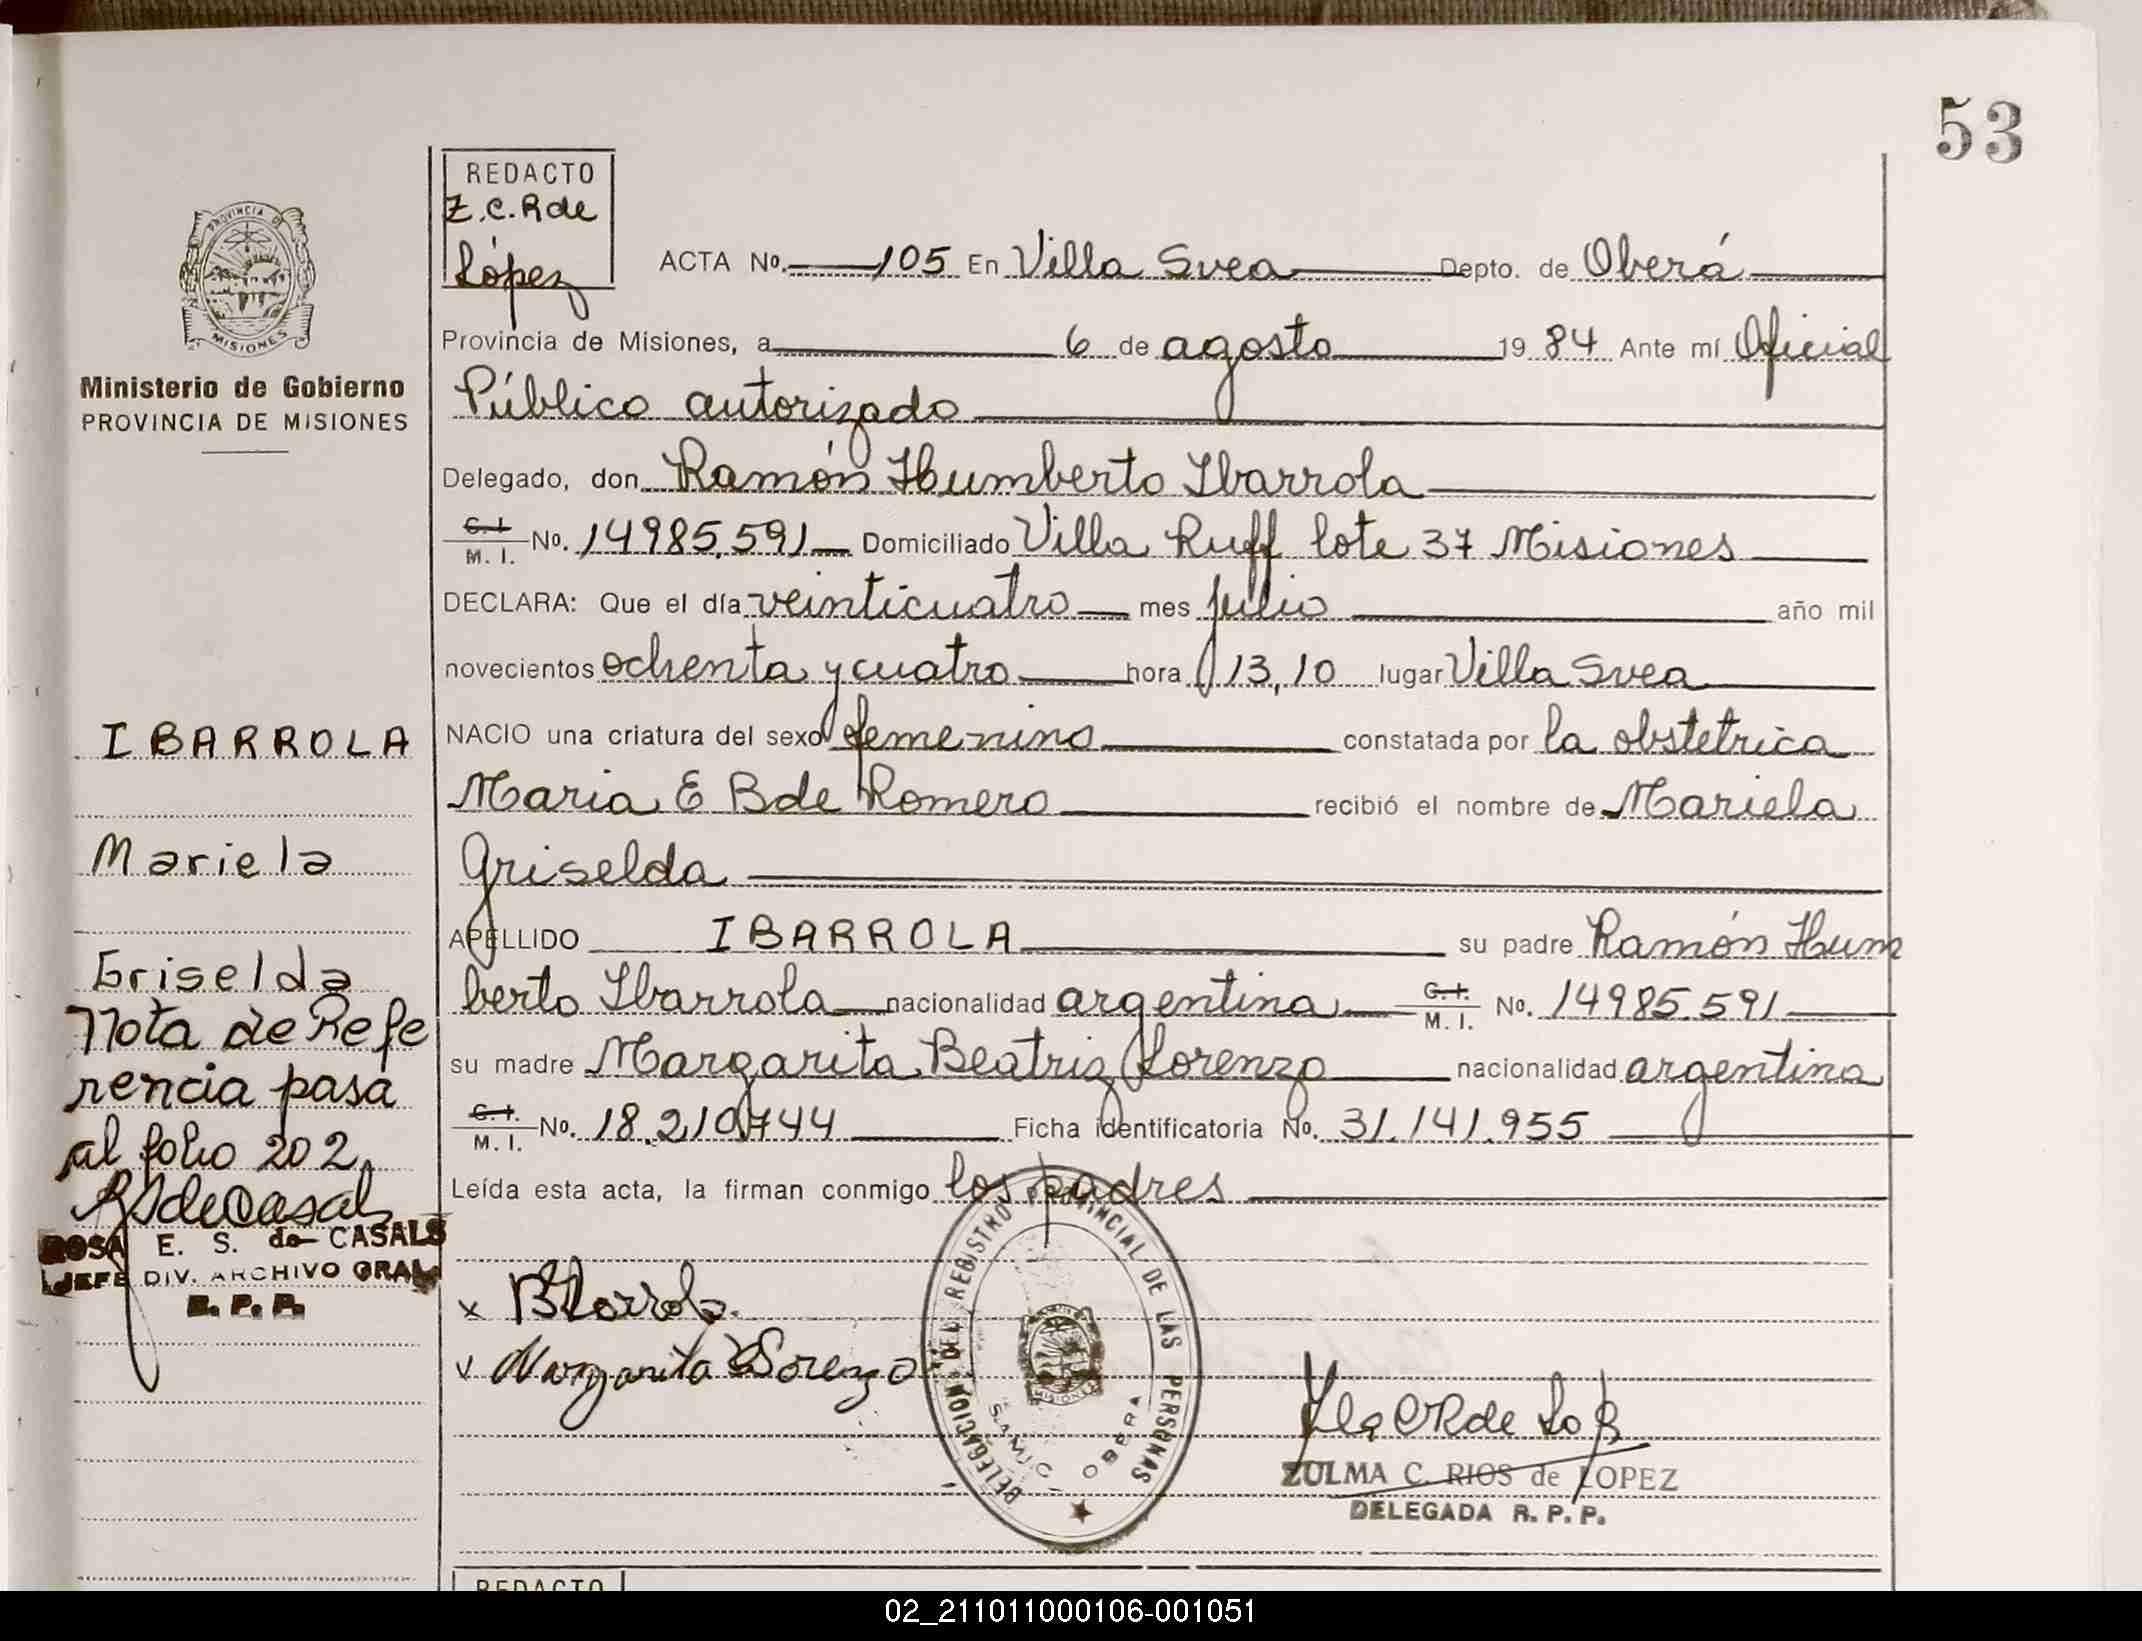 53
REDACTO
Z.C.R de
López
PROVINCIA DE
MISIONES
Ministerio de Gobierno
PROVINCIA DE MISIONES
ACTA No. 105 En Villa Svea Depto. de Oberá
Provincia de Misiones, a 6 de agosto 1984 Ante mí Oficial
Público autorizado
Delegado, don Ramón Humberto Ibarrola
C.I. M.I. No. 14985.591 Domiciliado Villa Ruff lote 37 Misiones
DECLARA: Que el día veinticuatro mes julio año mil
novecientos ochenta y cuatro hora 13,10 lugar Villa Svea
NACIO una criatura del sexo femenino constatada por la obstetrica
Maria E B de Romero recibió el nombre de Mariela
Griselda
APELLIDO IBARROLA su padre Ramón Hum
berto Ibarrola nacionalidad argentina C.I. M.I. No. 14985.591
su madre Margarita Beatriz Lorenzo nacionalidad argentina
C.I. M.I. No. 18.210.744 Ficha identificatoria No. 31.141.955
Leída esta acta, la firman conmigo los padres
IBARROLA
Mariela
Griselda
Nota de Refe
rencia pasa
al folio 202
RSdeCasals
ROSA E. S. de CASALS
JEFE DIV. ARCHIVO GRAL
R. P. P.
x Ibarrola
v Margarita Lorenzo
DELEGACION DEL REGISTRO PROVINCIAL DE LAS PERSONAS
MISIONES
SAMIC OBERA
ZULMA C. RIOS de LOPEZ
DELEGADA R. P. P.
REDACTO
02_211011000106-001051